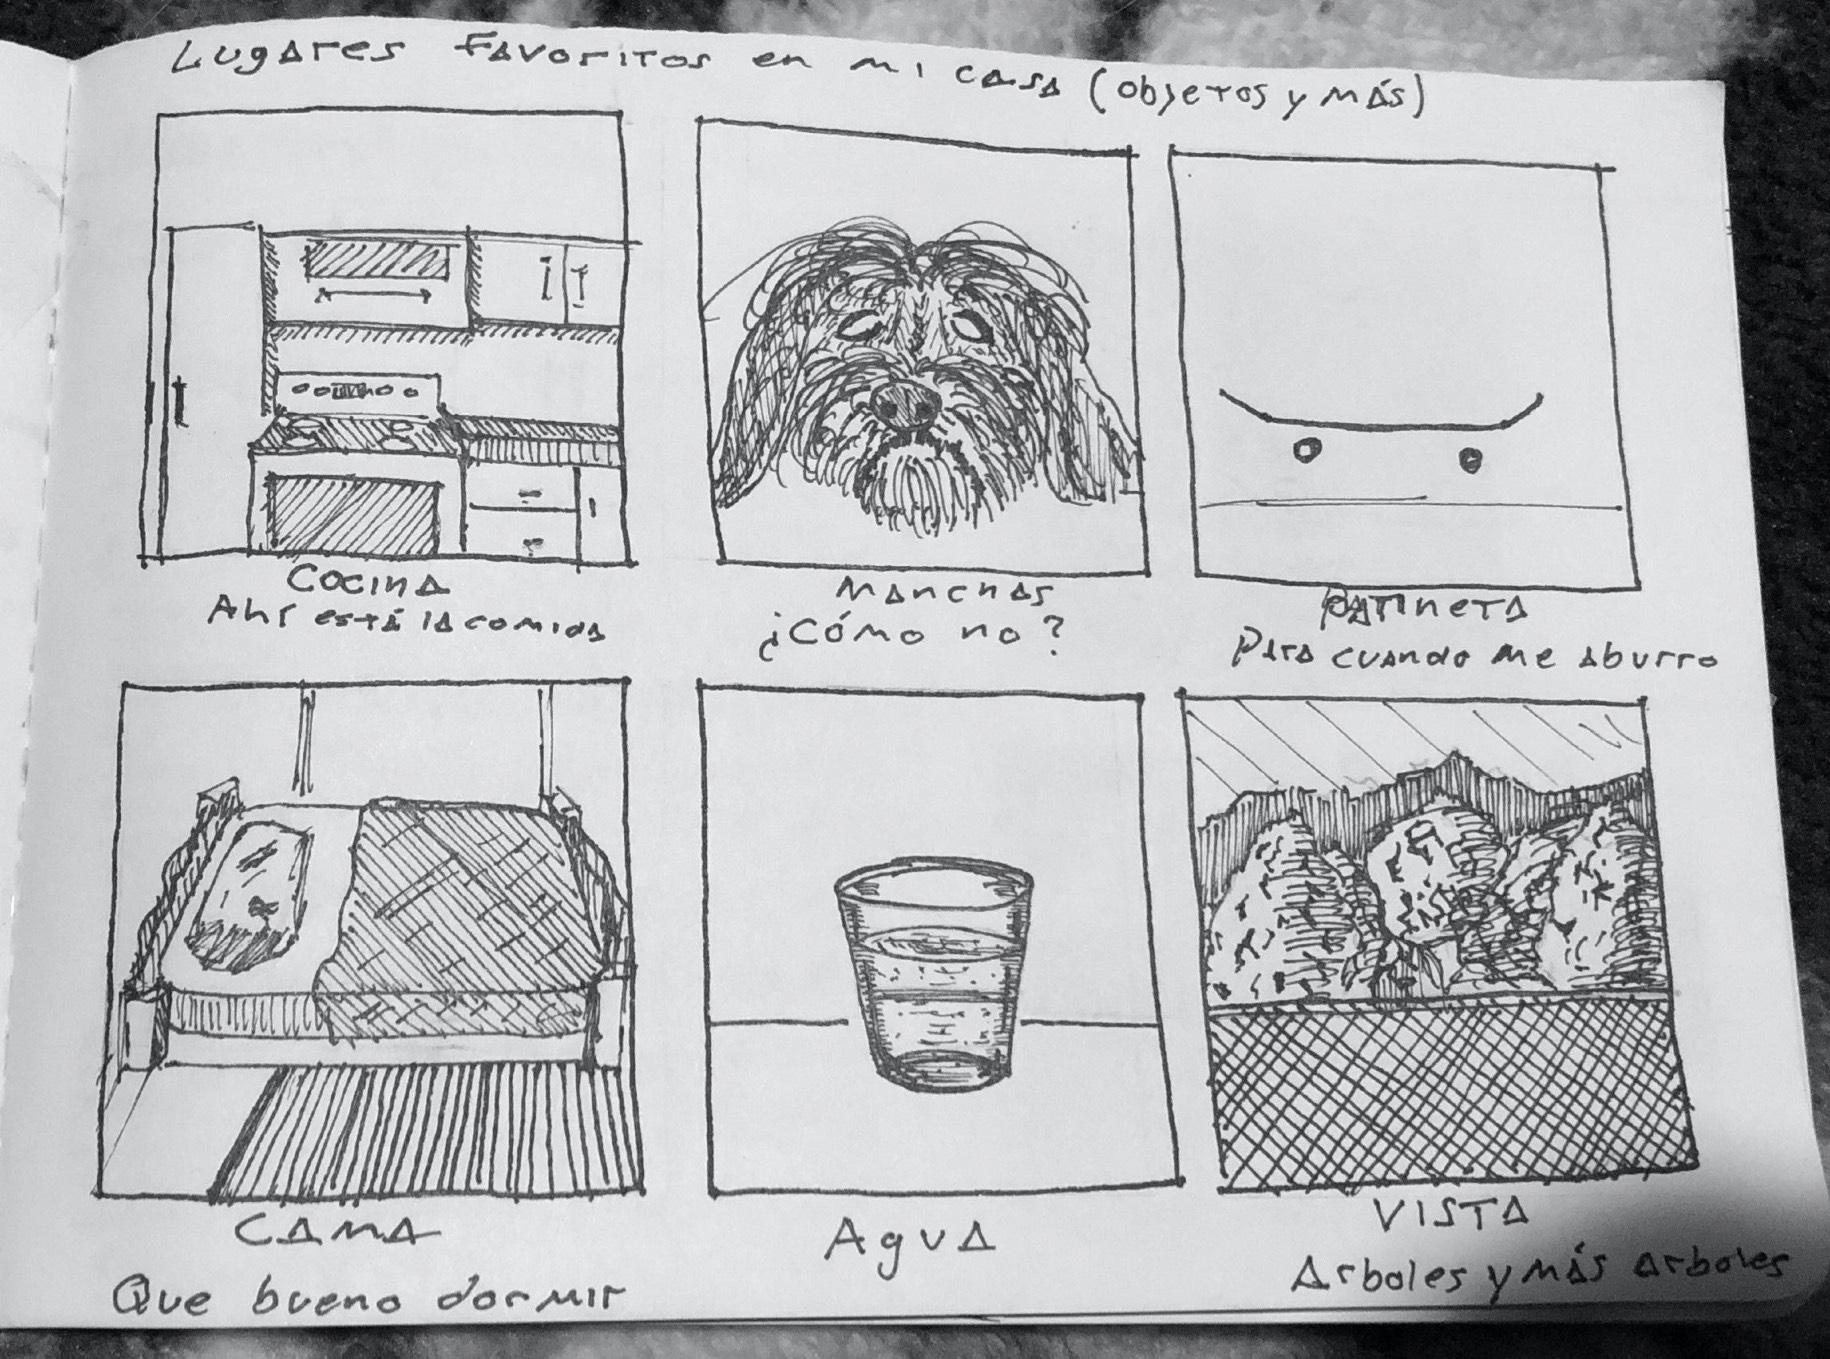 Lugares Favoritos en mi casa (objetos y más)
Cocina
Ahí está la comida
Manchas
¿Cómo no?
Patineta
Para cuando me aburro
Cama
Que bueno dormir
Agua
VISTA
Arboles y más arboles